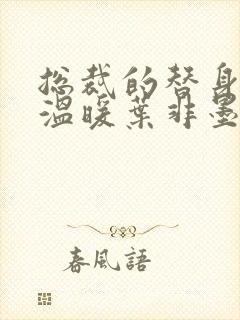 总裁的替身
温暖葉非墨
春風語